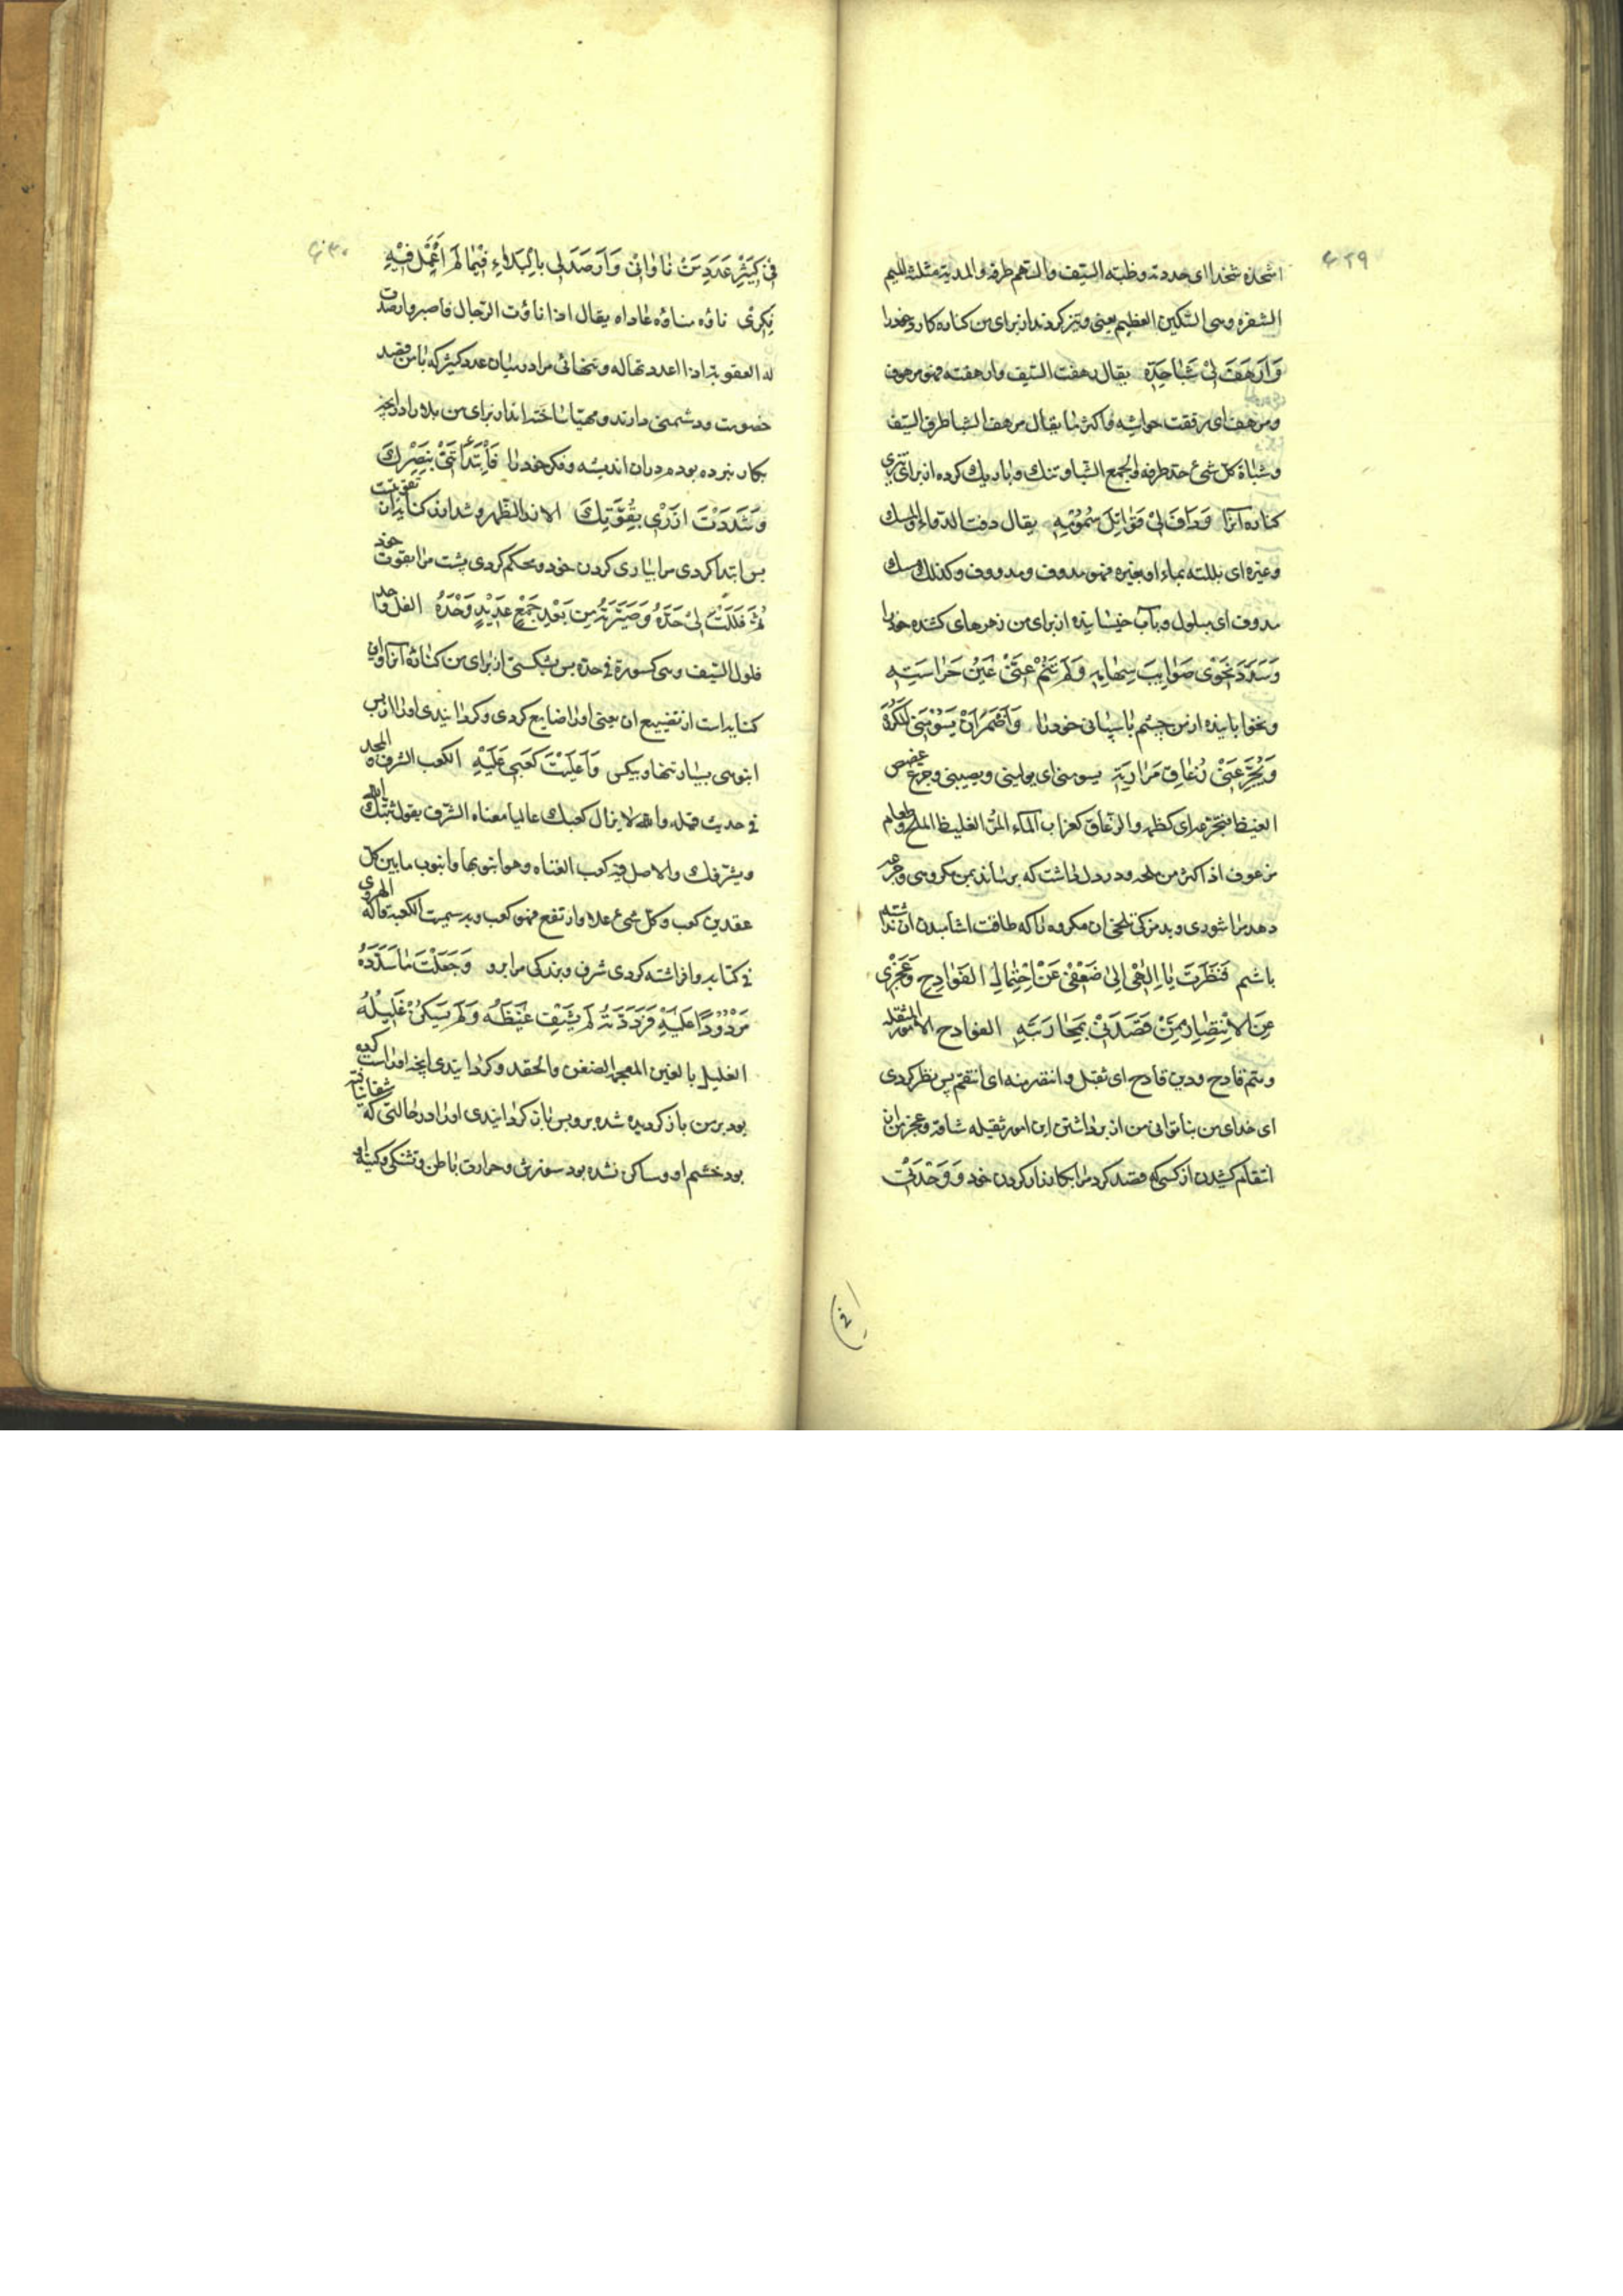 ۴۲۹
اشحذه شحذا ای حددته وظبة السیف والسهم طرفه والمدیة مثلثة المیم
الشفرة وهی السکین العظیم یعنی وتیز کردند از برای من کناره کارد خود را
وَاَرْهَفَ لِیْ شَبَا حَدِّهِ یقال رهفت السیف وارهفته فهو مرهوف
ومرهف ای رققت حواشیه واکثر ما یقال مرهف الشبا طرف السیف
وشباة کل شیٔ حد طرفه والجمع الشبا وتنک و باریک کرده از برای تیزی
کناره آنرا وَدَافَ لِیْ قَوَاتِلَ سُمُوْمِهِ یقال دفت الدواء والمسک
وغیره ای بللته بماء او بغیره فهو مدوف ومدووف وکذلک مسک
مدوف ای مبلول وبآب خیسانیده از برای من زهرهای کشنده خود را
وَسَدَّدَ نَحْوِی صَوَایِبَ سِهَامِهِ وَلَمْ تَنَمْ عَنِّیْ عَیْنُ حَرَاسَتِهِ
ونخوابانیده از من چشم پاسبانی خود را وَاَضْمَرَ اَنْ یَسُوْمَنِی الْمَکْرُوْهَ
وَیُجَرِّعَنِیْ زُعَاقَ مَرَارَتِهِ یسومنی ای یولینی ویصیبنی وجرع غصص
الغیظ فتجرعه ای کظمه والزعاق کغراب الماء المر الغلیظ الملح وطعام
مزعوف اذا اکثر من ملحه ودر دل داشت که برساند بمن مکروهی وجرعه
دهد مرا شوری و بدمزکی تلخی ان مکروه را که طاقت اشامیدن ان نداشته
باشم فَنَظَرْتَ یَا اِلٰهِیْ اِلٰی ضَعْفِیْ عَنْ اِحْتِمَالِ الْفَوَادِحِ وَعَجْزِی
عَنِ الْاِنْتِصَارِ مِمَّنْ قَصَدَنِیْ بِمُحَارَبَتِهِ الفوادح الامور المثقله
ویتم فادح ودین فادح ای ثقیل وانتقم منه ای انتقم پس نظر کردی
ای خدای من بناتوانی من از برداشتن این امور ثقیله شاقه وعجز من از
انتقام کشیدن از کسی که قصد کرد مرا بکارزار کردن خود وَوَحْدَتِیْ
۴۳۰
فِیْ کَثِیْرِ عَدَدِ مَنْ نَاوَانِیْ وَاَرْصَدَ لِی بِالْبَلَاءِ فِیْمَا لَمْ اُعْمِلْ فِیْهِ
فِکْرِیْ ناوَه مناوَه عاداه یقال اذا ناوَت الرجال فاصبر وارصدت
له العقوبة اذا اعددتها له وتنهائی مرا در میان عدد کثیر که با من قصد
خصومت ودشمنی دارند ومهیا ساخته اند از برای من بلا را در انچه
بکار نبرده بودم در ان اندیشه وفکر خود را فَابْتَدَأْتَنِیْ بِنَصْرِکَ
وَشَدَدْتَ اَزْرِیْ بِقُوَّتِکَ الازر الظهر وشد ازر کنایه از تقویت
پس ابتدا کردی مرا بیاری کردن خود ومحکم کردی پشت مرا بقوت خود
ثُمَّ فَلَلْتَ لِیْ حَدَّهُ وَصَیَّرْتَهُ مِنْ بَعْدِ جَمْعٍ عَدِیْدٍ وَحْدَهُ الفل واحد
فلول السیف وهی کسورة فی حده پس بشکستی از برای من کناره آنرا واین
کنایه است از تضییع ان یعنی او را ضایع کردی وکردانیدی او را از پس
انبوهی بسیار تنها وبیکس وَاَعْلَیْتَ کَعْبِی عَلَیْهِ الکعب الشرف والمجد
فی حدیث قیله والله لا یزال کعبک عالیا معناه الشرف یقول ثبتک الله
ویشرفک والاصل فیه کعب القناه وهو انبوبها وانبوب ما بین کل
عقدین کعب وکل شیٔ علا وارتفع فهو کعب وبه سمیت الکعبة قاله الهروی
فی کتابه وافراشته کردی شرف وبزرکی مرا برو وَجَعَلْتَ مَا سَدَّدَهُ
مَرْدُوْدًا عَلَیْهِ فَرَدَدْتَهُ لَمْ یَشْفِ غَیْظَهُ وَلَمْ یَسْکُنْ غَلِیْلُهُ
الغلیل بالغین المعجمة الضغن والحقد وکردانیدی انچه او راست کرده
بود بر من باز کردیده شده برو پس باز کردانیدی او را در حالتی که شفا نیافته
بود خشم او وساکن نشده بود سوزش وحرارت باطن وتشنکی وکینه او